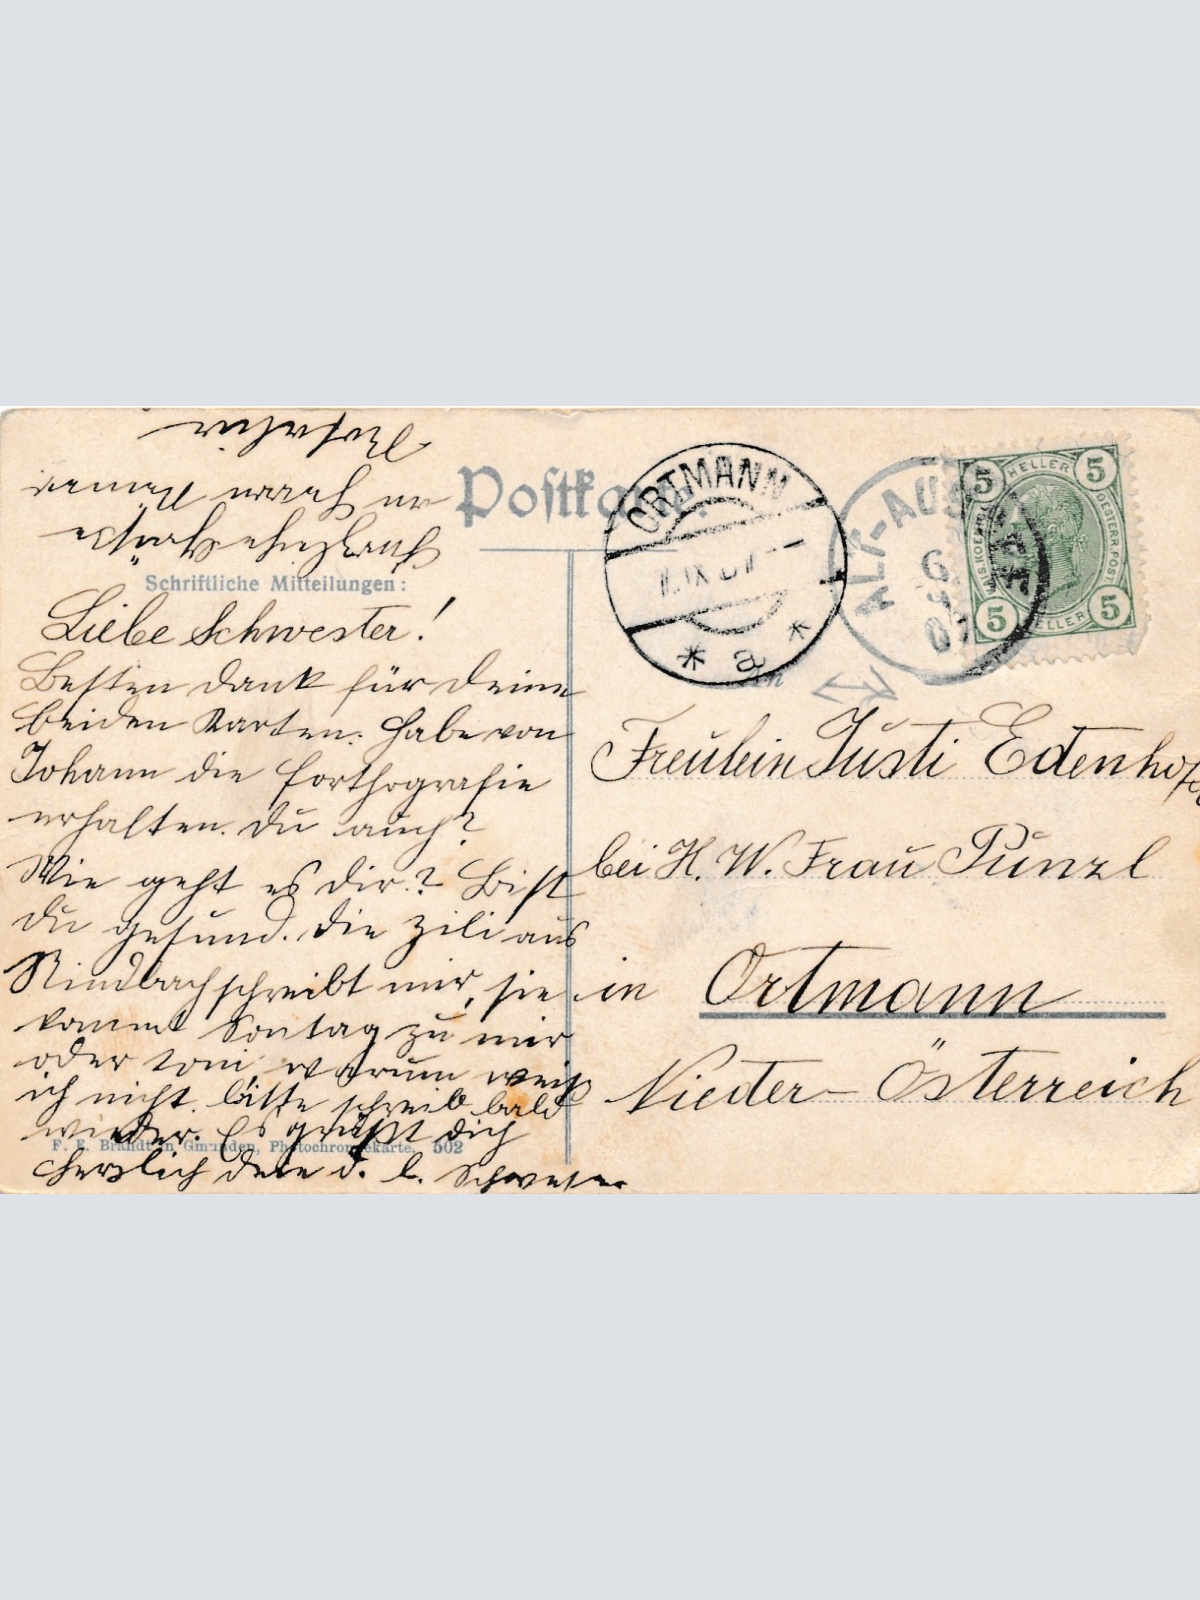 Postkarte.
Schriftliche Mitteilungen:
Liebe Schwester!
Besten Dank für Deine
beiden Karten. Habe von
Johann die Forthografie
erhalten. Du auch?
Wie geht es Dir? Bist
Du gesund. Die Zili aus
Rindbach schreibt mir, sie
kommt Sontag zu mir
oder Toni, warum weiß
ich nicht. bitte schreib bald
wieder. Es grüßt Dich
herzlich Dene d. l. Schwester
F. E. Brandt in Gmunden, Photochromiekarte. 502
an Herrn
Rosalia
ORTMANN
IX 07
* a *
ALT-AUSSEE
6 9 07
5 HELLER 5
KAIS. KOENIGL. OESTERR. POST
5 HELLER 5
An
Freulein Justi Edenhofer
bei H. W. Frau Punzl
in Ortmann
Nieder-Österreich